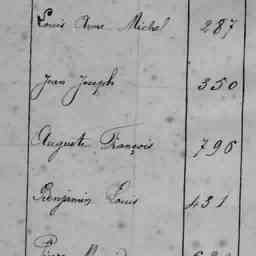 Louis Aimé Michel 287
Jean Joseph 350
Auguste François 796
Benjamin Louis 431
Pierre